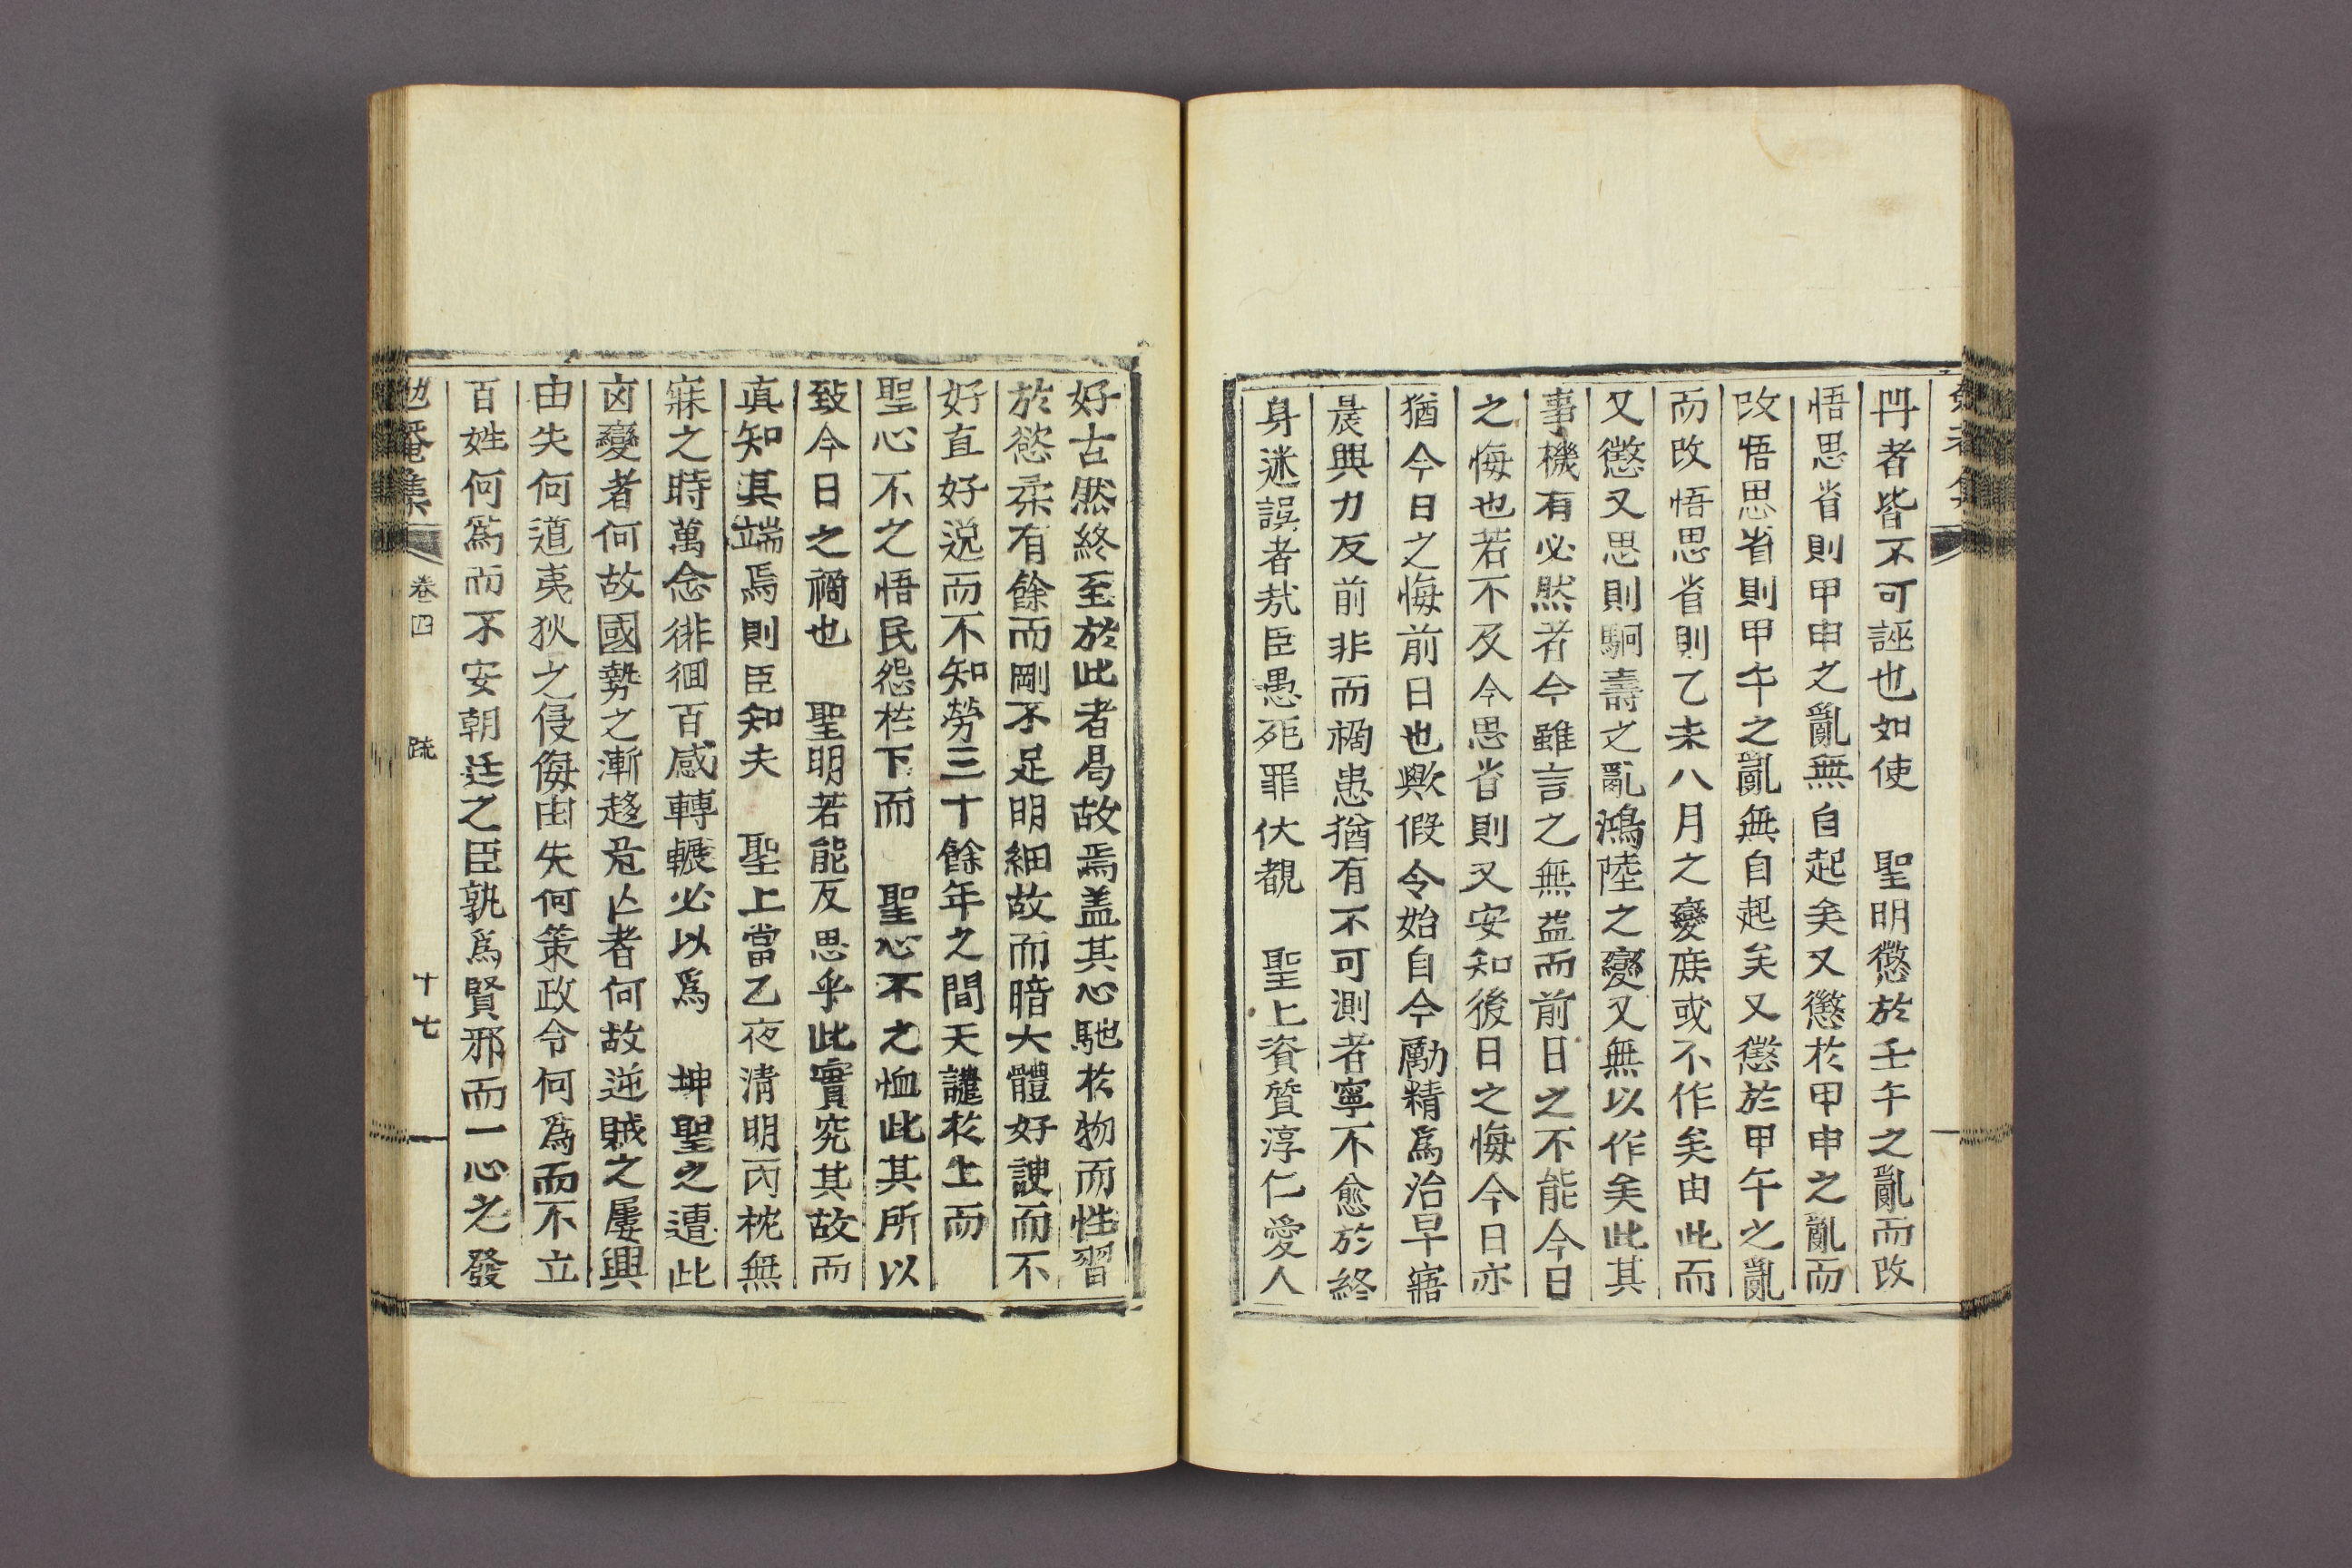 冊者皆不可誣也如使 聖明懲於壬午之亂而改
悟思省則甲申之亂無自起矣又懲於甲申之亂而
改悟思省則甲午之亂無自起矣又懲於甲午之亂
而改悟思省則乙未八月之變庶或不作矣由此而
又懲又思則駉壽之亂鴻陸之變又無以作矣此其
事機有必然者今雖言之無益而前日之不能今日
之悔也若不及今思省則又安知後日之悔今日亦
猶今日之悔前日也歟假令始自今勵精爲治早寤
晨興力反前非而禍患猶有不可測者寧不愈於終
身迷誤者哉臣愚死罪伏覩 聖上資質淳仁愛人
好古然終至於此者曷故焉盖其心馳於物而性習
於慾柔有餘而剛不足明細故而暗大體好諛而不
好直好逸而不知勞三十餘年之間天譴於上而
聖心不之悟民怨於下而 聖心不之恤此其所以
致今日之禍也 聖明若能反思乎此實究其故而
真知其端焉則臣知夫 聖上當乙夜清明丙枕無
寐之時萬念徘徊百感轉輾必以爲 坤聖之遭此
凶變者何故國勢之漸趍危亡者何故逆賊之屢興
由失何道夷狄之侵侮由失何策政令何爲而不立
百姓何爲而不安朝廷之臣孰爲賢邪而一心之發
勉菴集 卷四 疏 十七